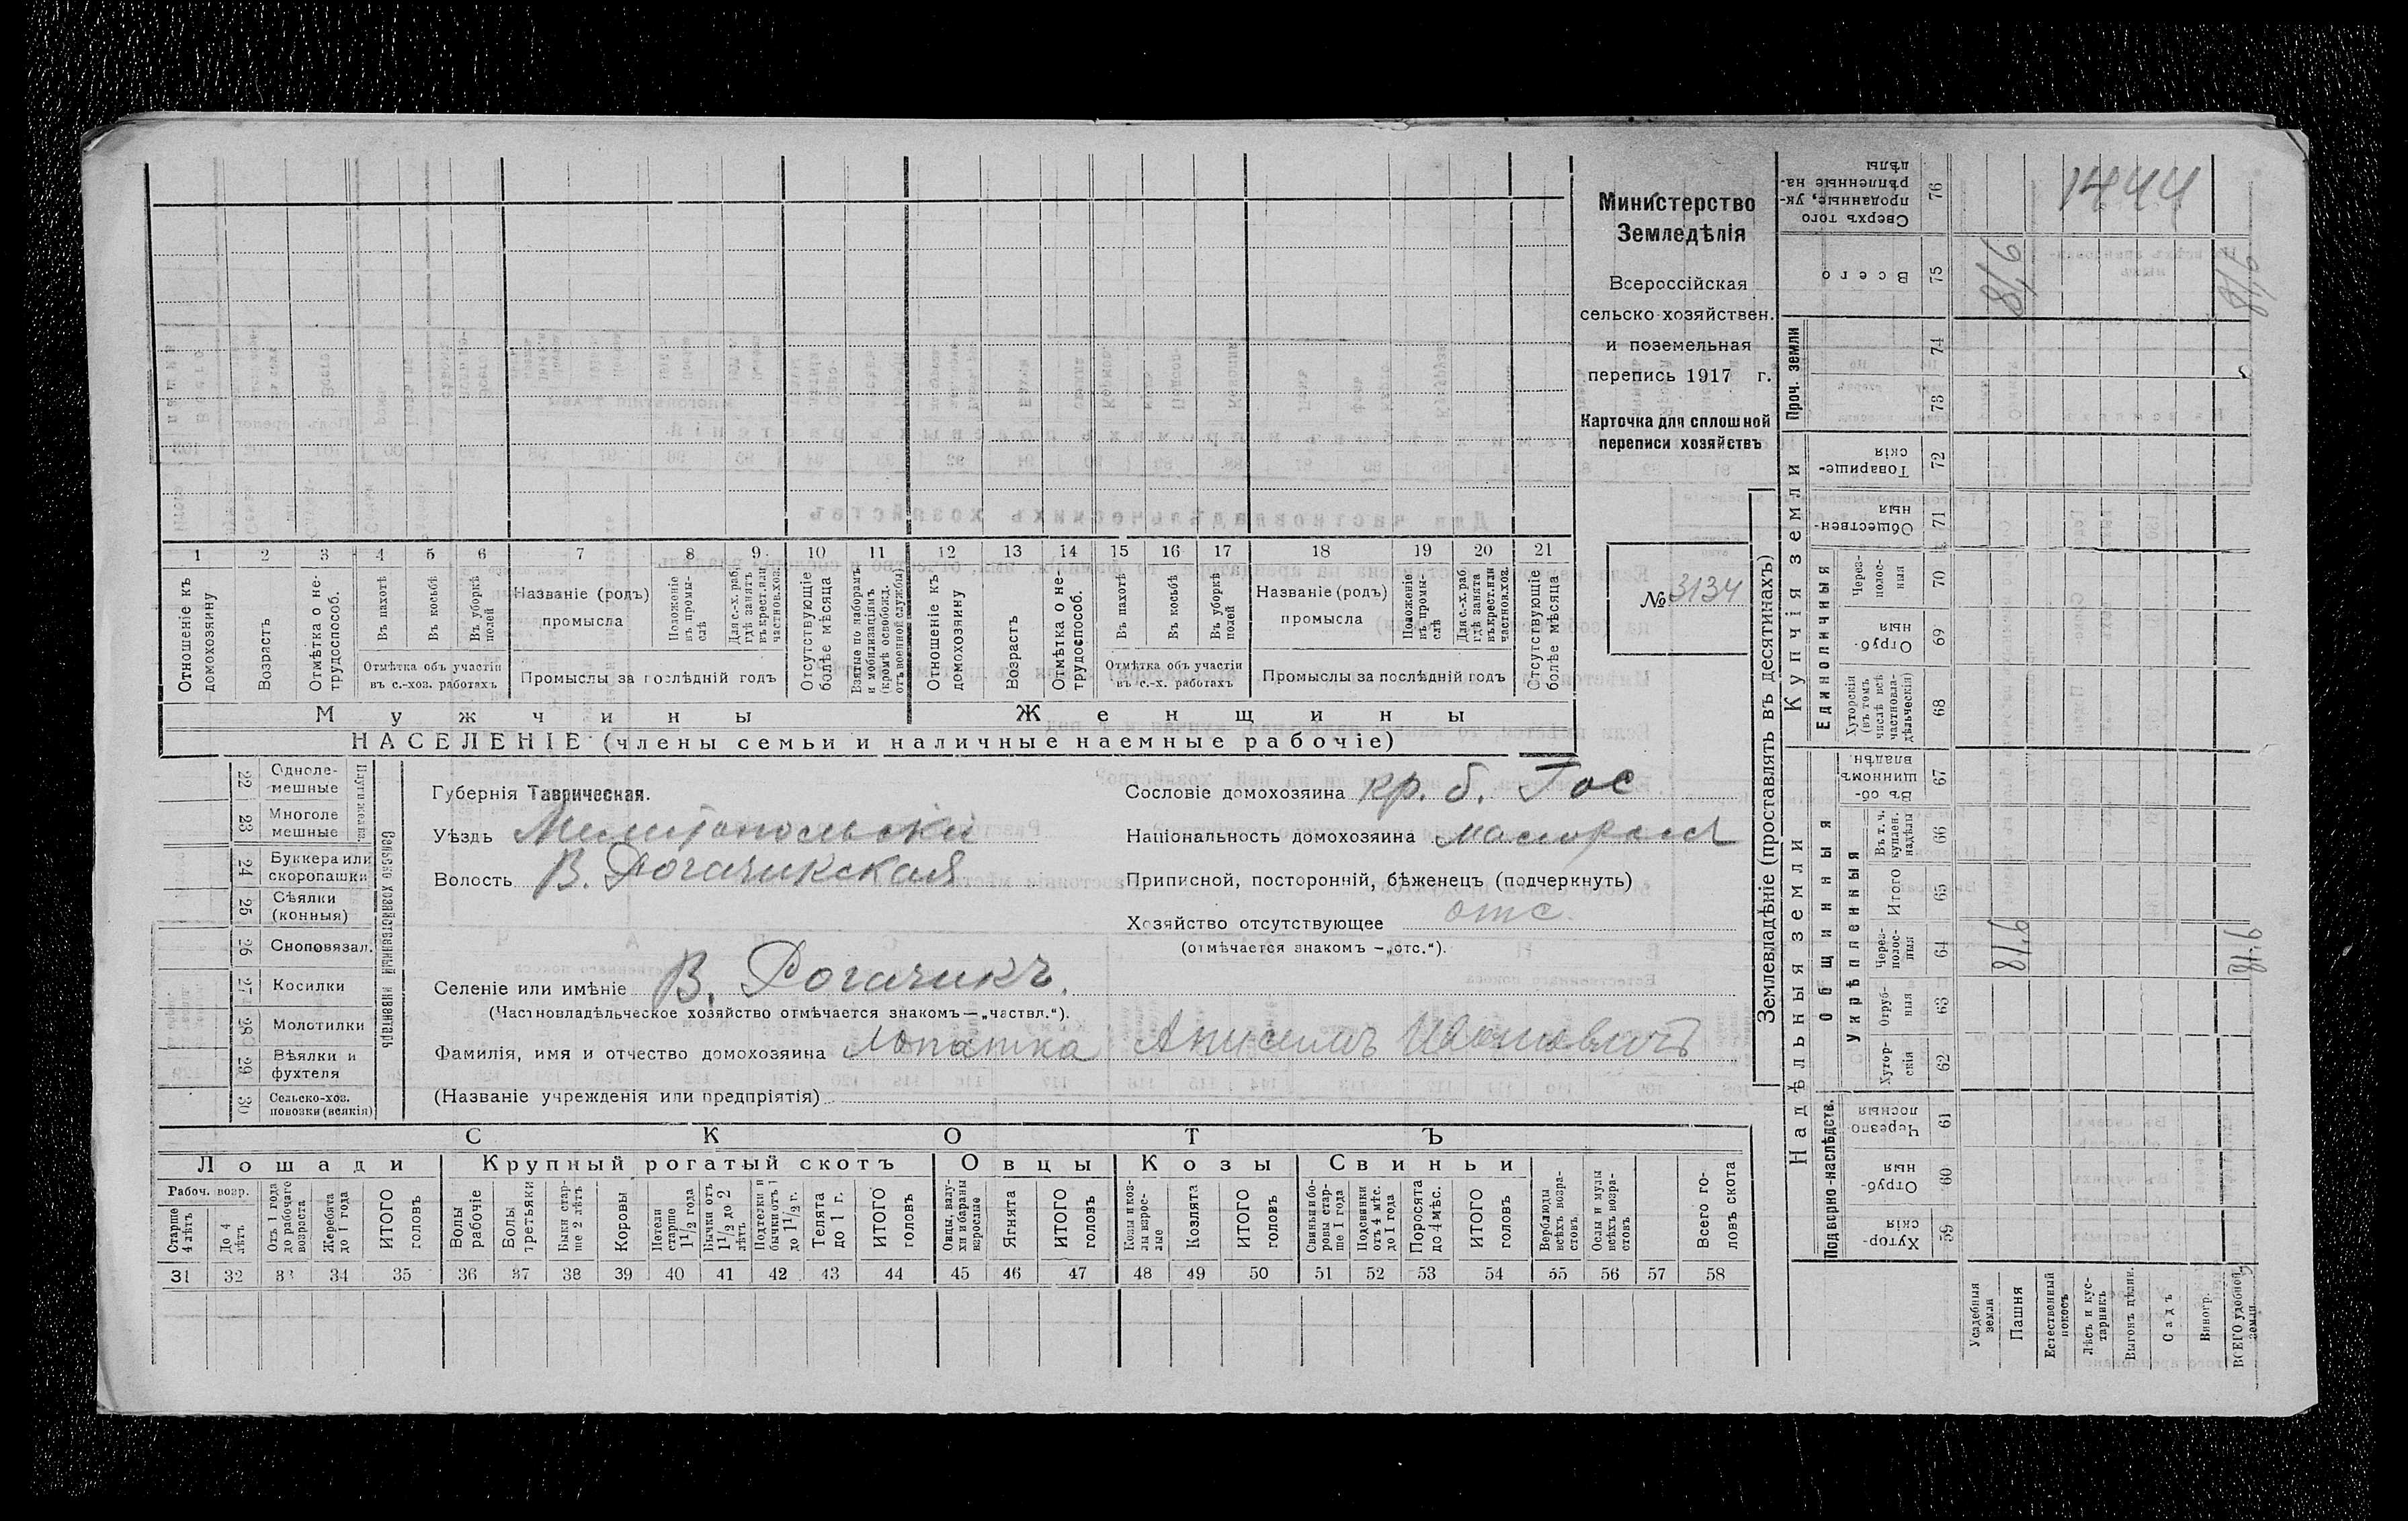 Министерство
Земледѣлія
Всероссійская
сельско-хозяйствен.
и поземельная
перепись 1917 г.
Карточка для сплошной
переписи хозяйствъ
№ 3134
1444
1 2 3 4 5 6 7 8 9 10 11 12 13 14 15 16 17 18 19 20 21
Отношеніе къ домохозяину
Возрастъ
Отмѣтка о не-трудоспособ.
Въ пахотѣ
Въ косьбѣ
Въ уборкѣ полей
Отмѣтка объ участіи въ с.-хоз. работахъ
Названіе (родъ) промысла
Положеніе въ промы-слѣ
Для с.-х. раб. гдѣ занятъ въ крест. или частнов. хоз.
Промыслы за послѣдній годъ
Отсутствующіе болѣе мѣсяца
Взятые по наборамъ и мобилизаціямъ (кромѣ освобожд. отъ военной службы)
Отношеніе къ домохозяину
Возрастъ
Отмѣтка о не-трудоспособ.
Въ пахотѣ
Въ косьбѣ
Въ уборкѣ полей
Отмѣтка объ участіи въ с.-х. работахъ
Названіе (родъ) промысла
Положеніе въ промы-слѣ
Для с.-х. раб. гдѣ занята въ крест. или частнов. хоз.
Промыслы за послѣдній годъ
Отсутствующіе болѣе мѣсяца
Мужчины
Женщины
НАСЕЛЕНІЕ (члены семьи и наличные наемные рабочіе)
22 Одноле-мешные
23 Многоле мешные
24 Буккера или скоропашки
25 Сѣялки (конныя)
26 Сноповязал.
27 Косилки
28 Молотилки
29 Вѣялки и фухтеля
30 Сельско-хоз. повозки (всякія)
Сельско хозяйственный инвентарь
Губернія Таврическая.
Уѣздъ Мелитопольскій
Волость В. Рогачикская
Селеніе или имѣніе В. Рогачикъ.
(Частновладѣльческое хозяйство отмѣчается знакомъ—„частвл.“).
Фамилія, имя и отчество домохозяина Лопатка Анисимъ Ивановичъ
(Названіе учрежденія или предпріятія)
Сословіе домохозяина кр. б. Гос
Національность домохозяина малоросъ
Приписной, посторонній, бѣженецъ (подчеркнуть)
Хозяйство отсутствующее отс.
(отмѣчается знакомъ —„отс.“).
СКОТЪ
Лошади
Крупный рогатый скотъ
Овцы
Козы
Свиньи
Рабоч. возр.
Старше 4 лѣтъ
До 4 лѣтъ
Отъ 1 года до рабочаго возраста
Жеребята до 1 года
ИТОГО головъ
Волы рабочіе
Волы третьяки
Быки стар-ше 2 лѣтъ
Коровы
Нетели старше 1½ года
Бычки отъ 1½ до 2 лѣтъ
Подтелки и бычки отъ 1 до 1½ г.
Телята до 1 г.
ИТОГО головъ
Овцы, валу-хи и бараны взрослые
Ягнята
ИТОГО головъ
Козы и коз-лы взрос-лые
Козлята
ИТОГО головъ
Свиньи и бо-ровы стар-ше 1 года
Подсвинки отъ 4 мѣс. до 1 года
Поросята до 4 мѣс.
ИТОГО головъ
Верблюды всѣхъ возра-стовъ
Ослы и мулы всѣхъ возра-стовъ
Всего го-ловъ скота
31 32 33 34 35 36 37 38 39 40 41 42 43 44 45 46 47 48 49 50 51 52 53 54 55 56 57 58
Землевладѣніе (проставлять въ десятинахъ)
Надѣльныя земли
Купчія земли
Проч. земли
Подворно-наслѣдств.
Общинныя
Укрѣпленныя
Единоличныя
Сверхъ того проданные, ук-рѣпленные на-дѣлы 76
Всего 75
74
73
Товарище-скія 72
Обществен-ныя 71
Через-полос-ныя 70
Отруб-ныя 69
Хуторскія (въ томъ числѣ всѣ частновла-дѣльческія) 68
Въ об-щинномъ владѣн. 67
Въ т. ч. куплен. надѣлы 66
Итого 65
Через-полос-ныя 64
Отруб-ныя 63
Хутор-скія 62
Черезпо-лосныя 61
Отруб-ныя 60
Хутор-скія 59
Усадебныя земли
Пашня
Естественный покосъ
Лѣсъ и кус-тарникъ
Выгонъ цѣлин.
Садъ
Виногр.
ВСЕГО удобной земли.